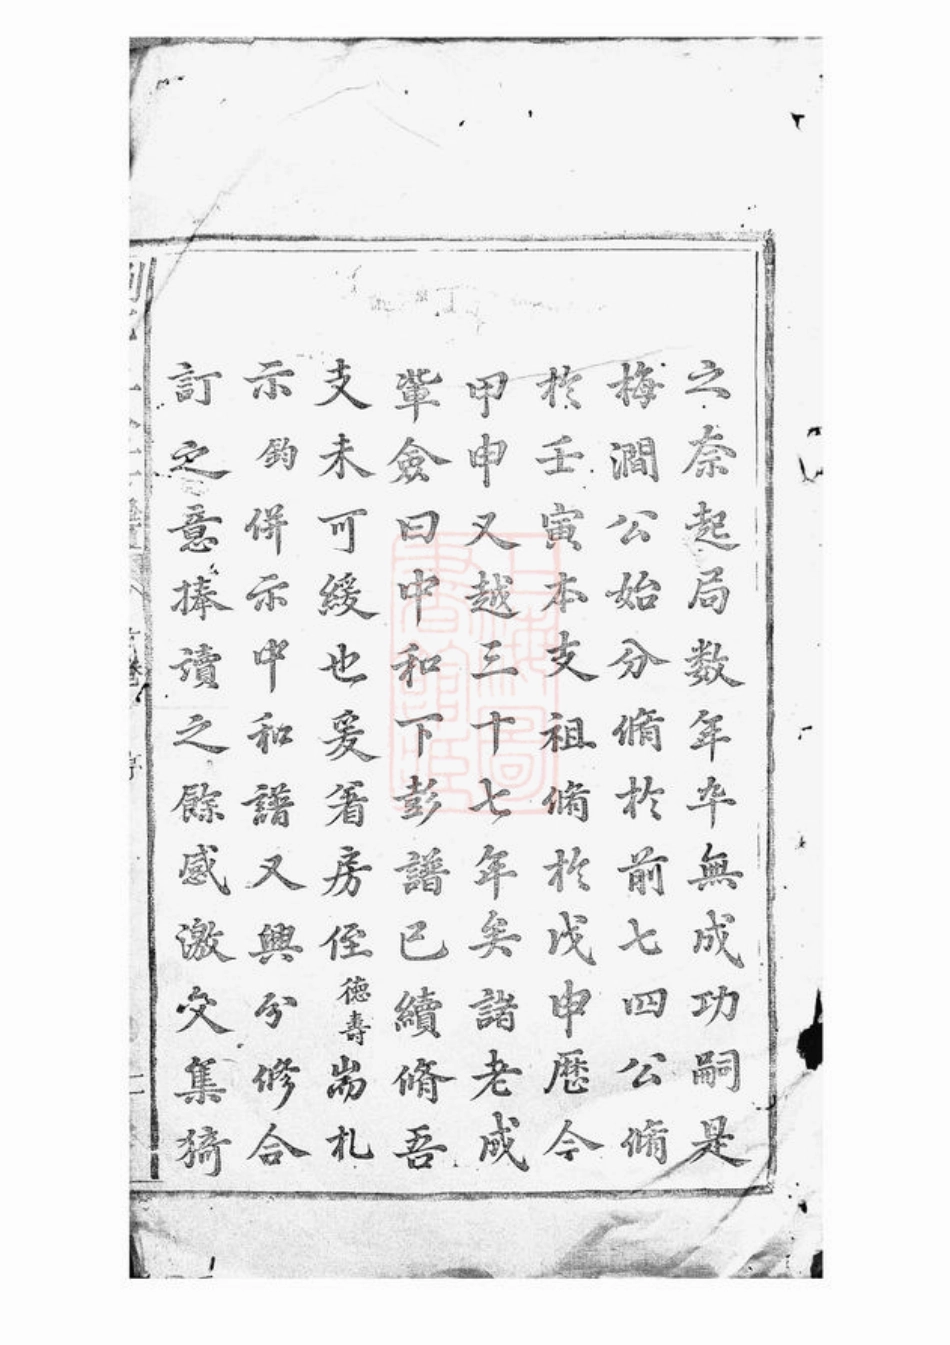 之奈起局数年卒無成功嗣是
梅澗公始分脩於前七四公脩
於壬寅本支祖脩於戊申歷今
甲申又越三十七年矣諸老成
輩僉曰中和下彭譜已續脩吾
支未可緩也爰著房侄德壽耑札
示鈞併示中和譜又興分修合
訂之意捧讀之餘感激交集猗